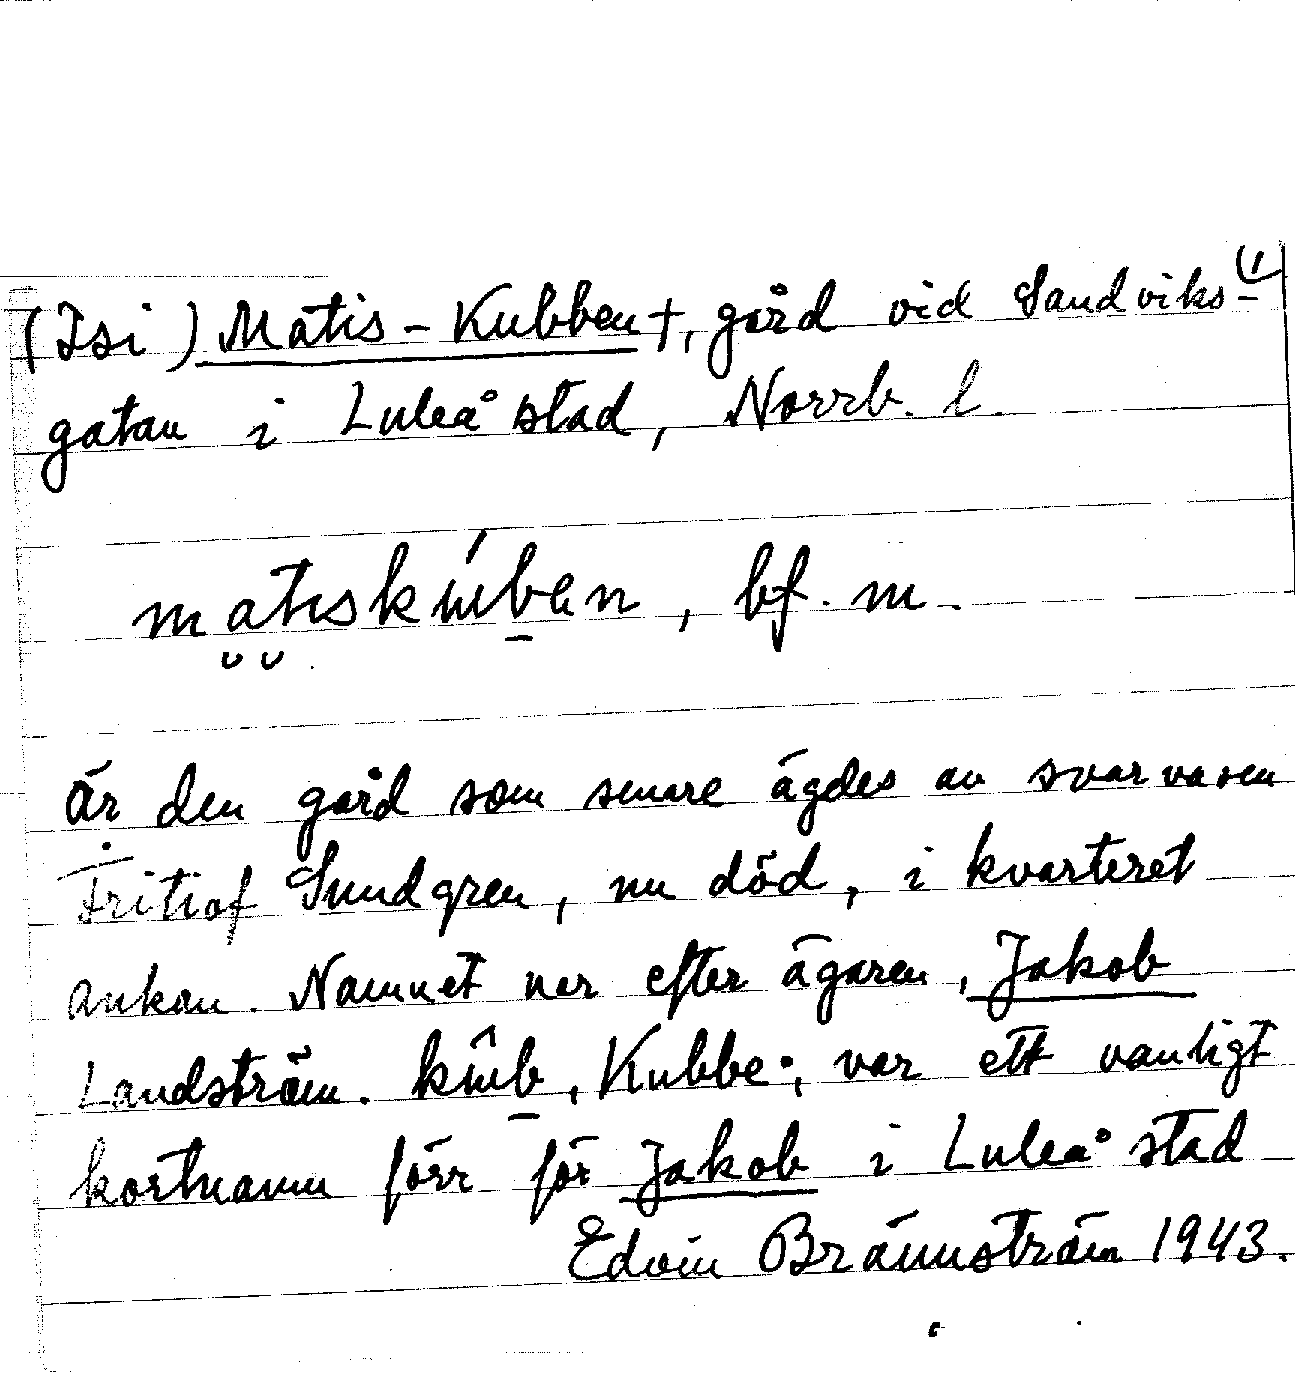 (1
(Isi) Matis-Kubben †, gård vid Sandviks-
gatan i Luleå stad, Norrb. l.
matiskúben, bf. m.
Är den gård som senare ägdes av svarvaren
Fritiof Sundgren, nu död, i kvarteret
Ankan. Namnet var efter ägaren, Jakob
Landström. kûb, Kubbe, var ett vanligt
kortnamn förr för Jakob i Luleå stad
Edvin Brännström 1943.